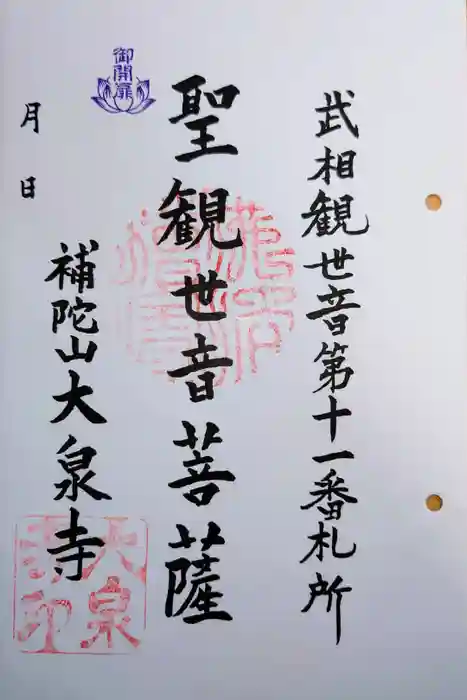 武相観世音第十一番札所
御開扉
聖観世音菩薩
月 日
補陀山大泉寺
大泉